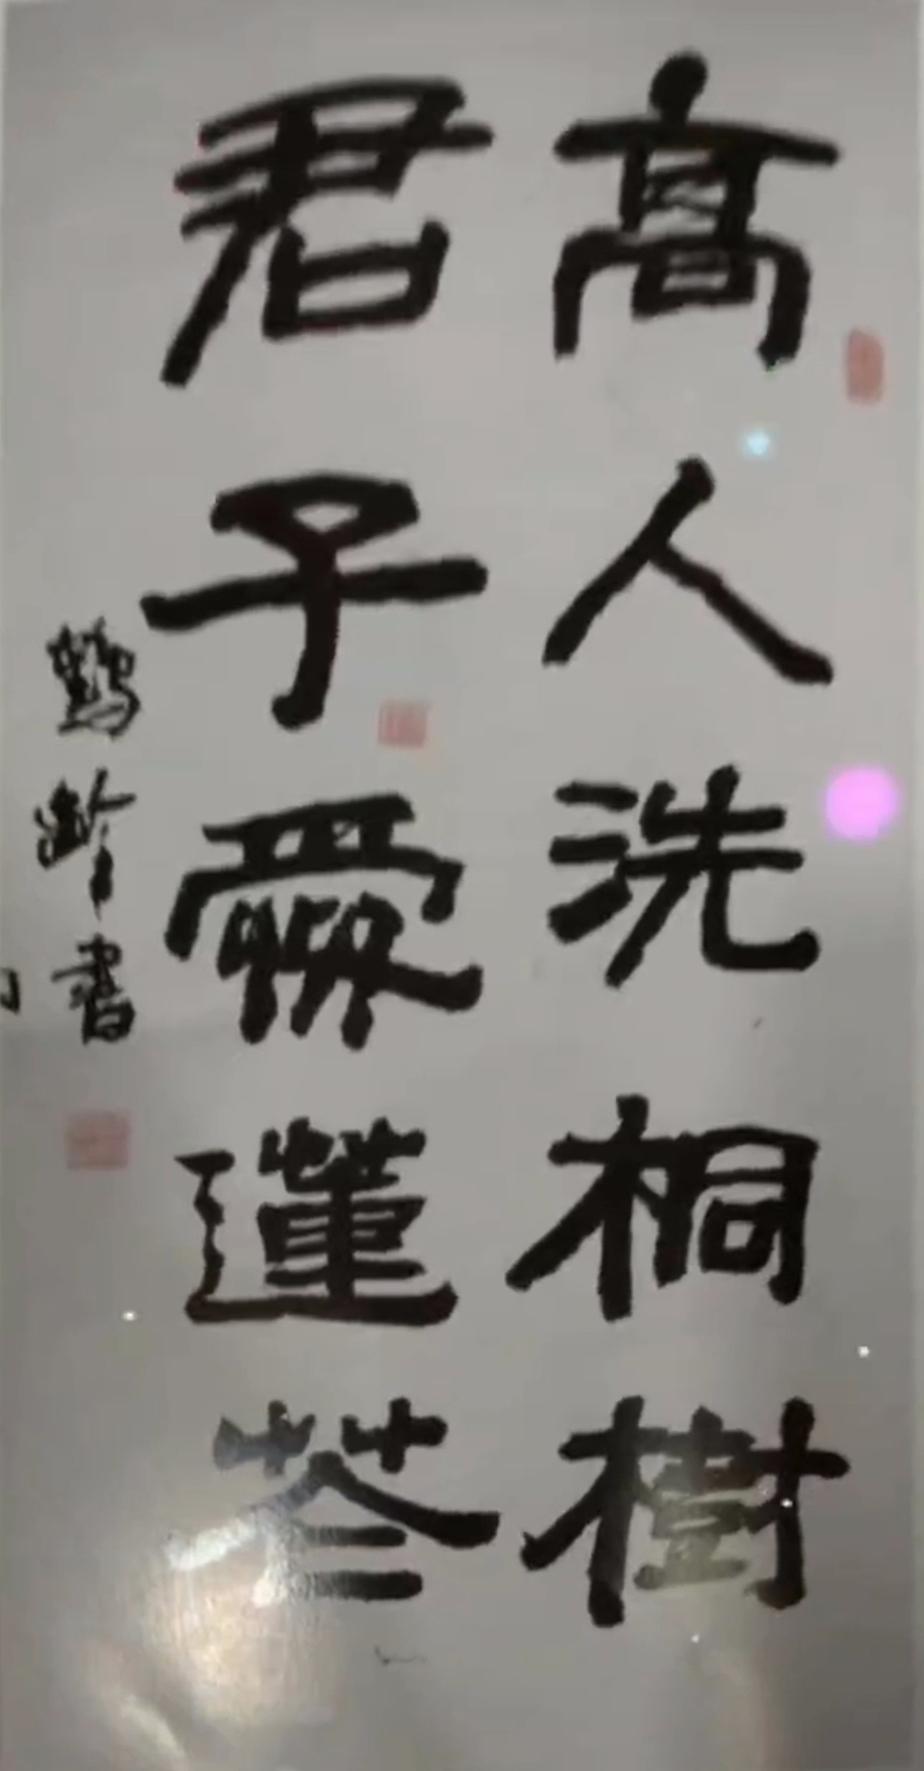 髙人洗桐樹
君子愛蓮花
鶴齡書